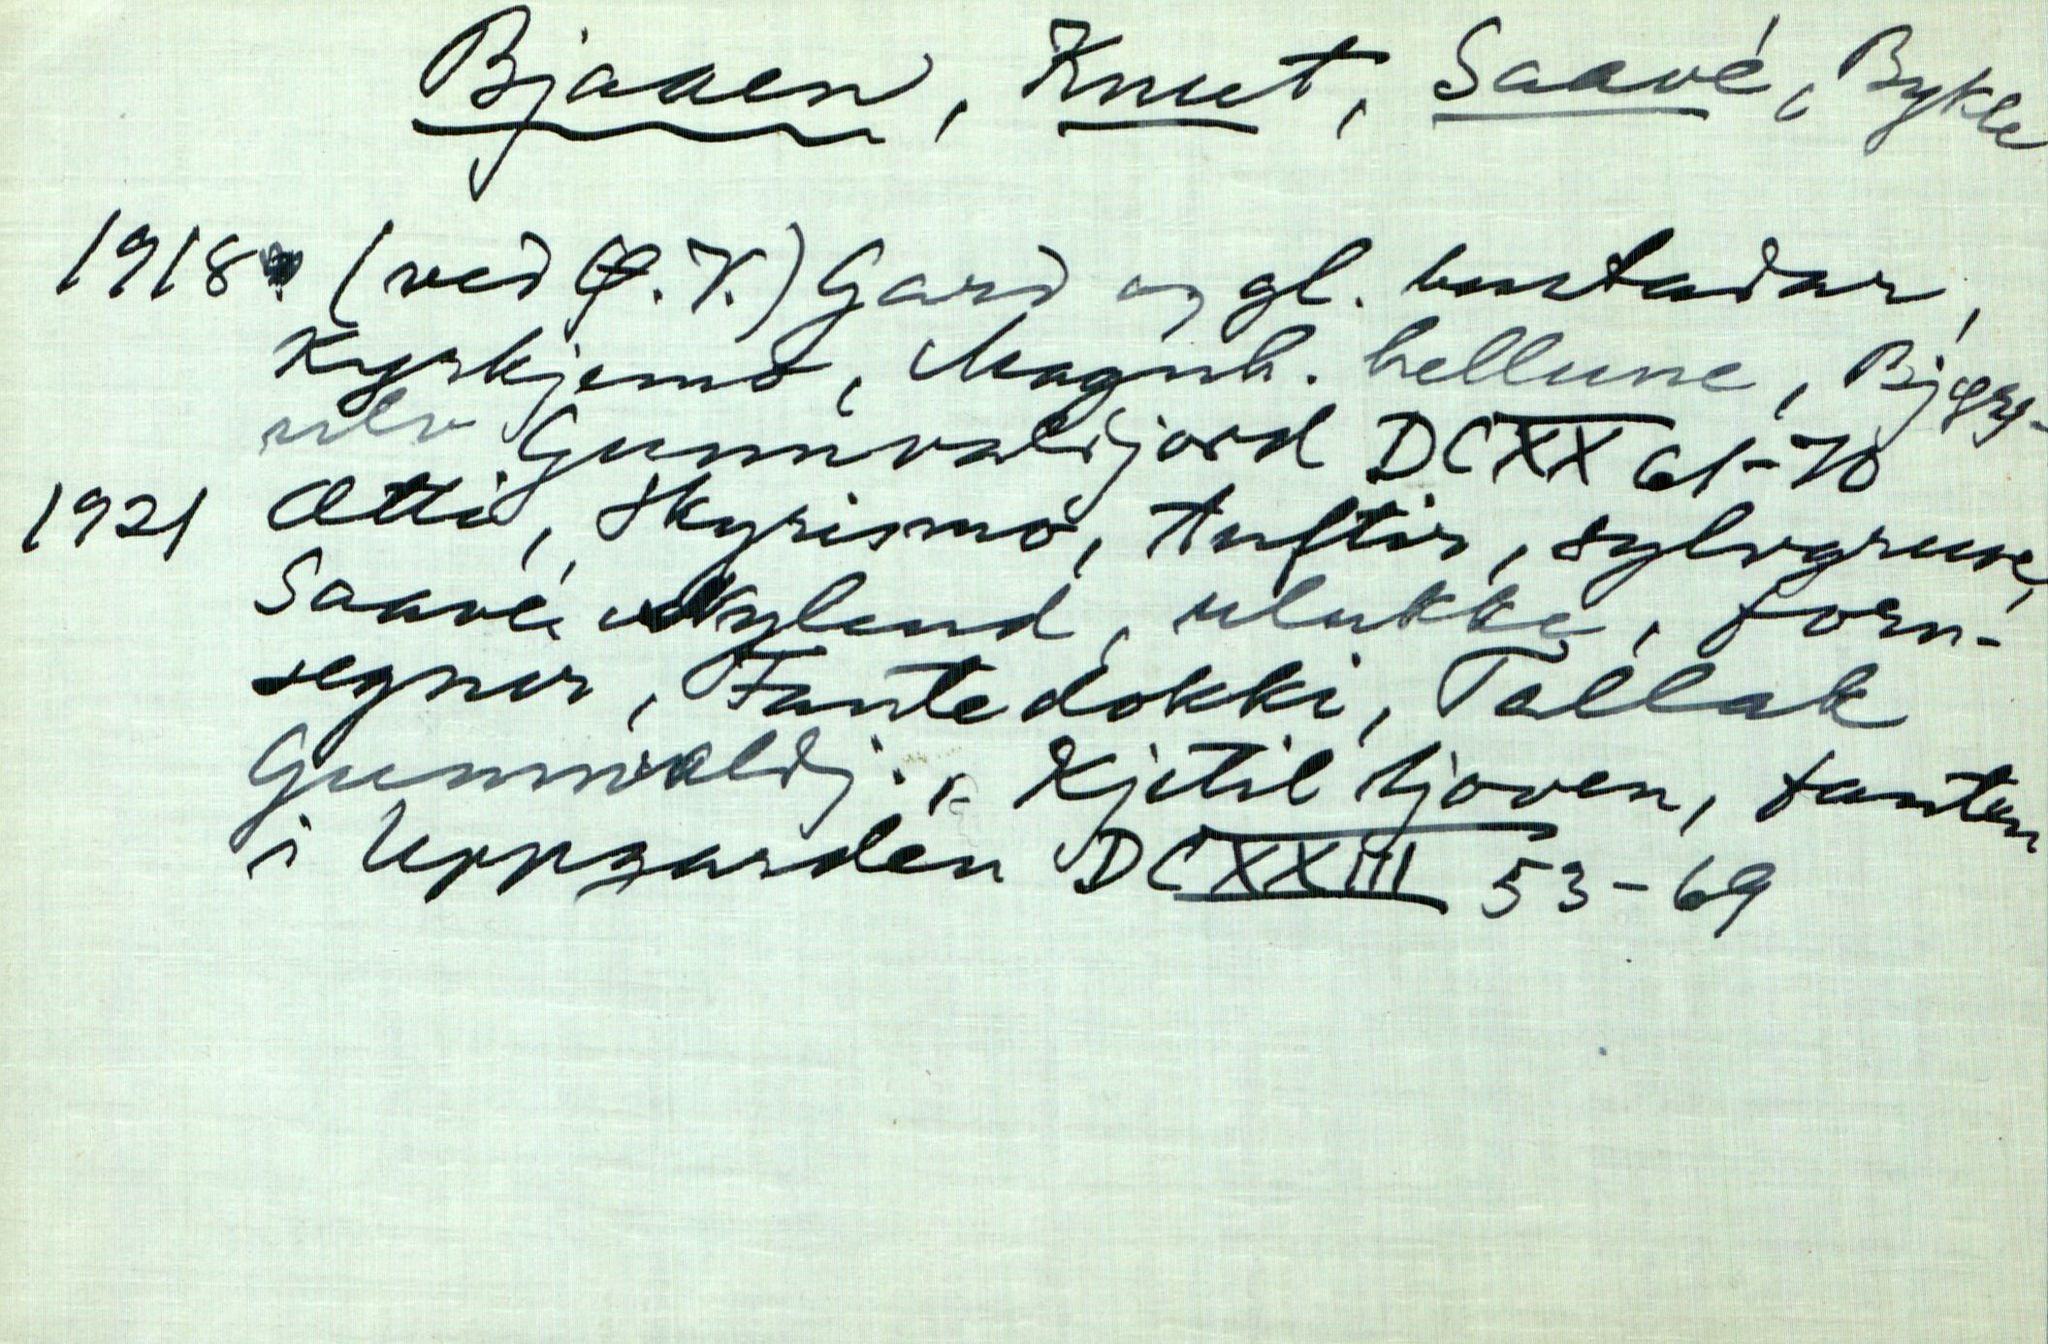 Bjaaen, Knut, Saavé, Bykle
1918. (ved Ø.K.) Gard og gl. bustadar,
Kyrkjemo, Magnh. hellune, Bjørg-
ulv Gunnvaldjord DCXX 61-70
1921 Ætti, Skyrismo, Tuftir, sylvgruve,
Saavé, Nylund, ulukke, forn-
segner, Fantedokki, Tallak
Gunnvaldj., Kjetil tjoven, fanten
i Uppgarden DCXXIII 53-69